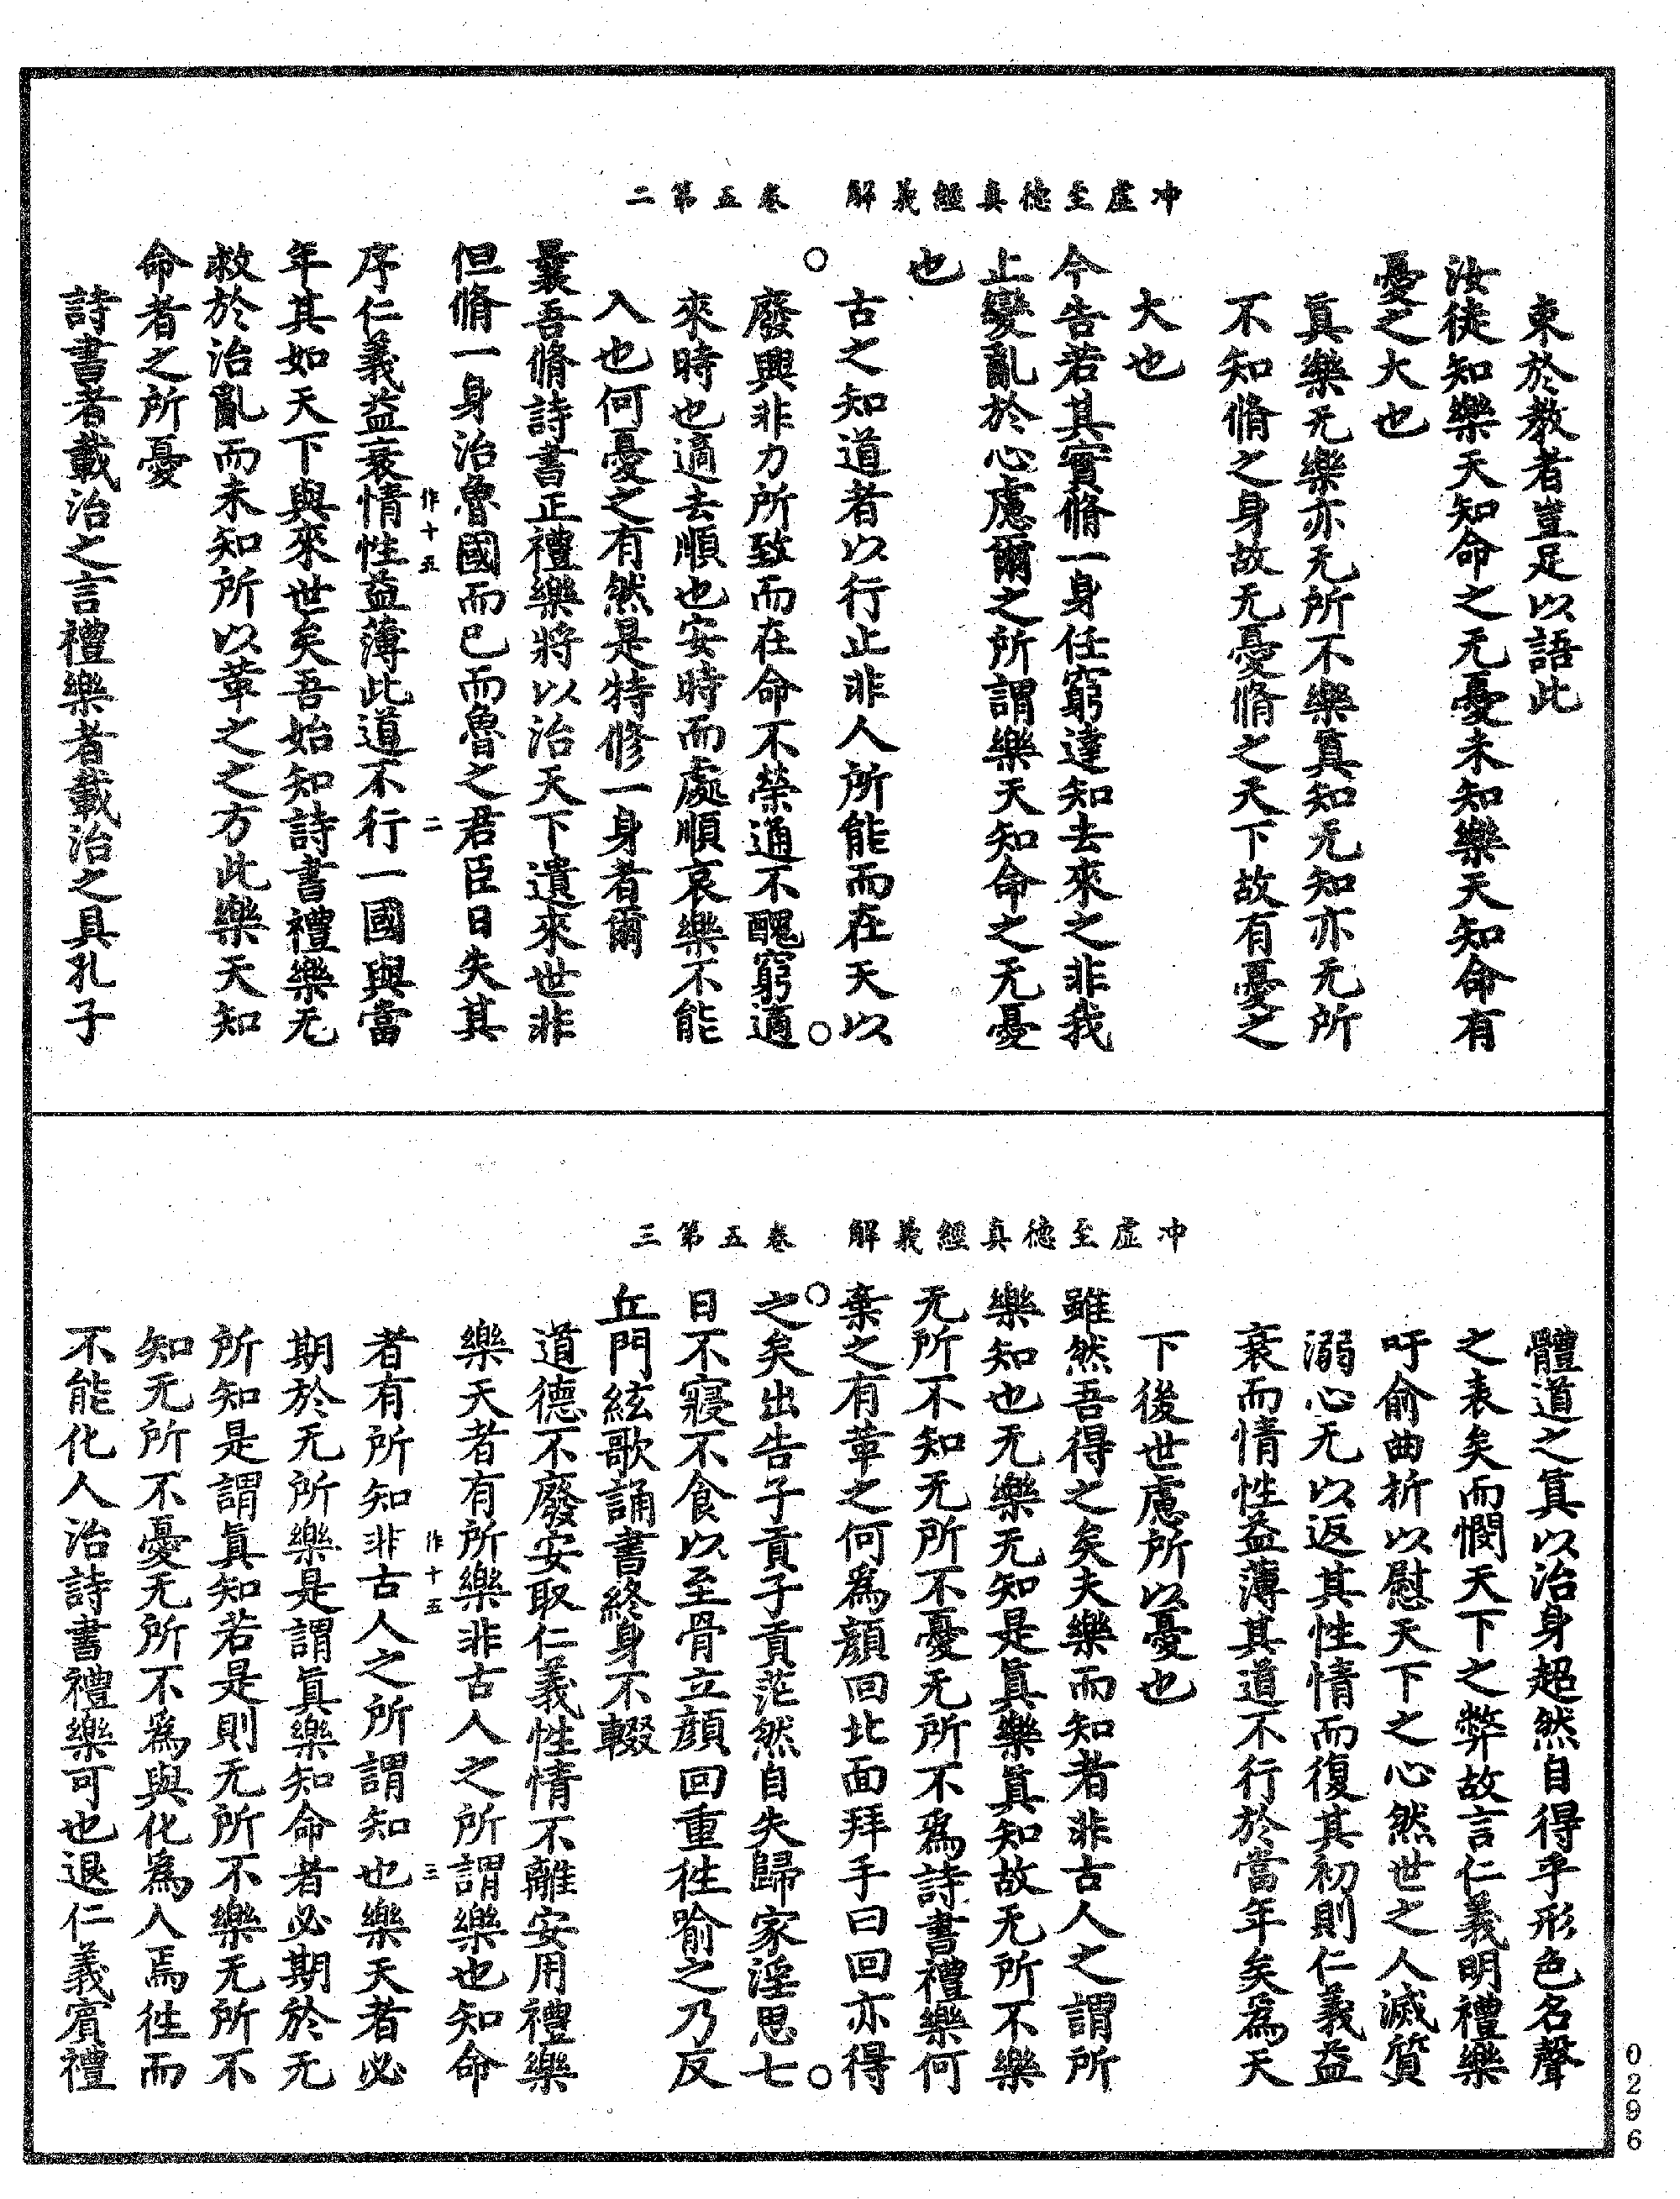 冲虛至德真經義解　卷五第二
束於教者豈足以語此
汝徒知樂天知命之无憂未知樂天知命有
憂之大也
真樂无樂亦无所不樂真知无知亦无所
不知脩之身故无憂脩之天下故有憂之
大也
今告若其實脩一身任窮達知去來之非我
止變亂於心慮爾之所謂樂天知命之无憂
也
古之知道者以行止非人所能而在天以
廢興非力所致而在命不榮通不醜窮適
來時也適去順也安時而處順哀樂不能
入也何憂之有然是特修一身者爾
曩吾脩詩書正禮樂將以治天下遺來世非
但脩一身治魯國而已而魯之君臣日失其
作十五　二
序仁義益衰情性益薄此道不行一國與當
年其如天下與來世矣吾始知詩書禮樂无
救於治亂而未知所以革之之方此樂天知
命者之所憂
詩書者載治之言禮樂者載治之具孔子
冲虛至德真經義解　卷五第三
體道之真以治身超然自得乎形色名聲
之表矣而憫天下之弊故言仁義明禮樂
吁俞曲折以慰天下之心然世之人滅質
溺心无以返其性情而復其初則仁義益
衰而情性益薄其道不行於當年矣為天
下後世慮所以憂也
雖然吾得之矣夫樂而知者非古人之謂所
樂知也无樂无知是真樂真知故无所不樂
无所不知无所不憂无所不為詩書禮樂何
棄之有革之何為顏回北面拜手曰回亦得
之矣出告子貢子貢茫然自失歸家淫思七
日不寢不食以至骨立顏回重往喻之乃反
丘門絃歌誦書終身不輟
道德不廢安取仁義性情不離安用禮樂
樂天者有所樂非古人之所謂樂也知命
作十五　三
者有所知非古人之所謂知也樂天者必
期於无所樂是謂真樂知命者必期於无
所知是謂真知若是則无所不樂无所不
知无所不憂无所不為與化為人焉往而
不能化人治詩書禮樂可也退仁義賓禮
0296